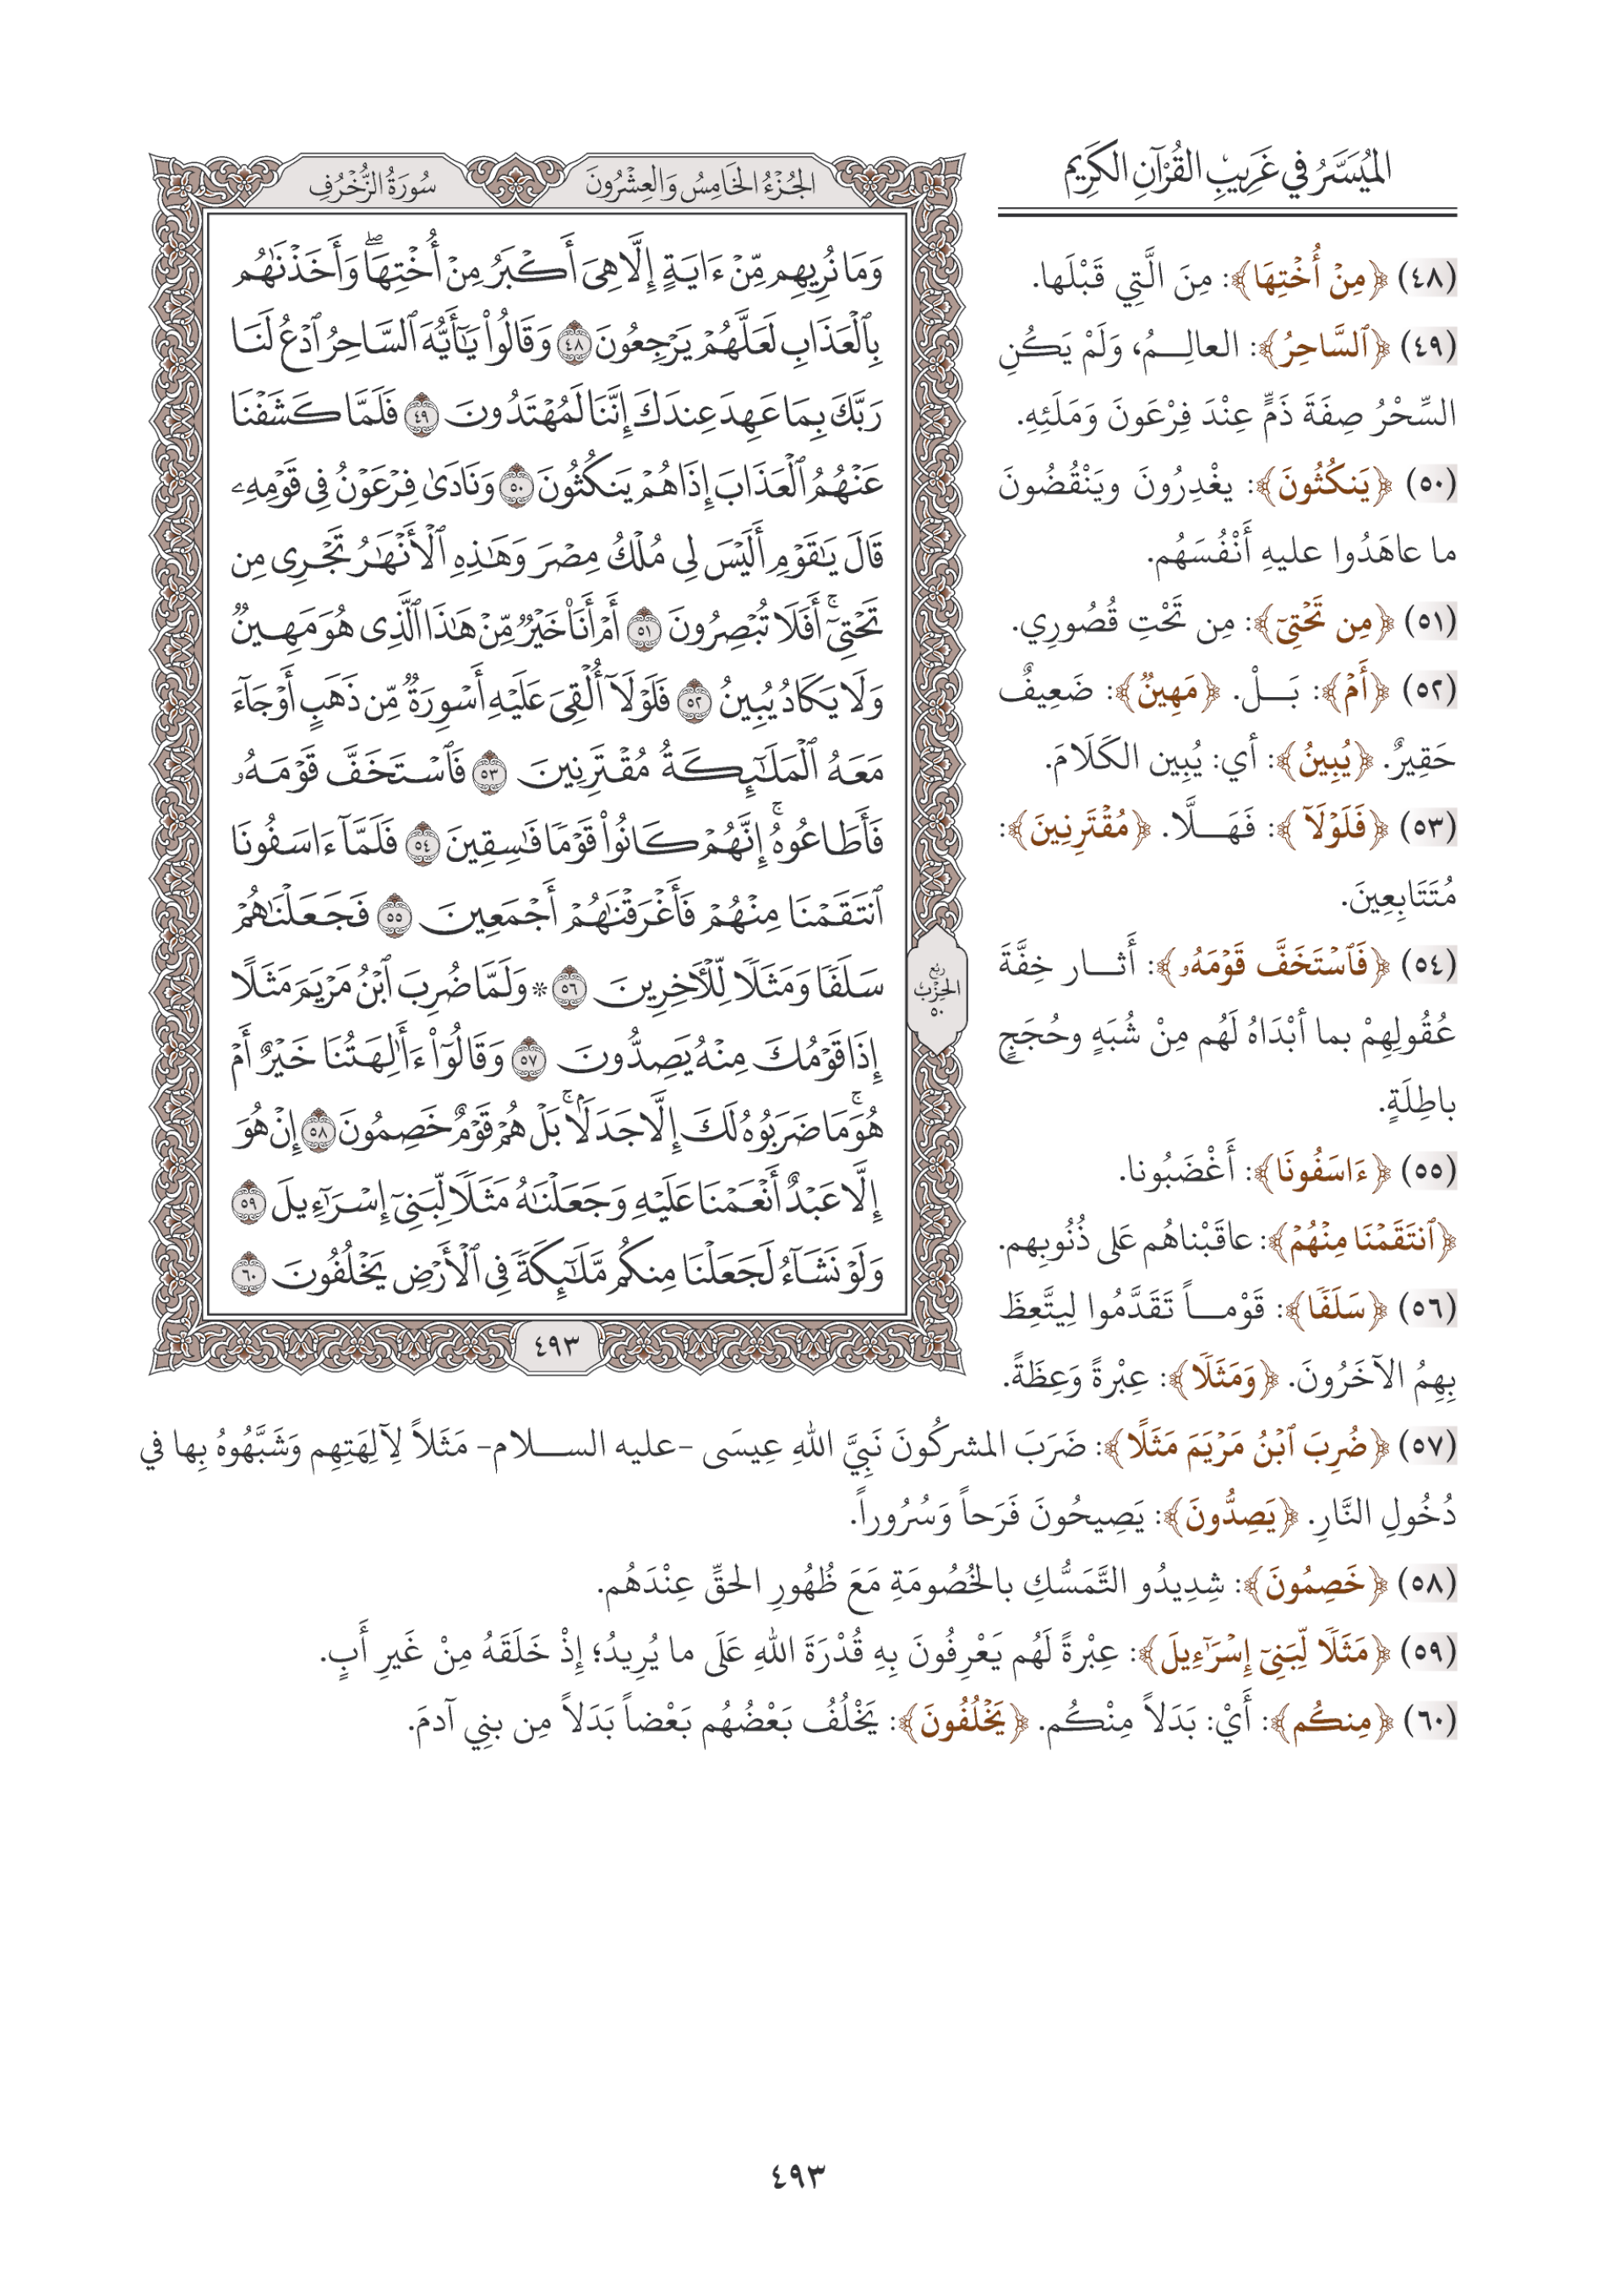 المُيَسَّرُ في غَرِيبِ القُرْآنِ الكَرِيم
الجُزْءُ الخَامِسُ وَالعِشْرُونَ
سُورَةُ الزُّخْرُفِ
وَمَا نُرِيهِم مِّنْ ءَايَةٍ إِلَّا هِىَ أَكْبَرُ مِنْ أُخْتِهَاۖ وَأَخَذْنَٰهُم
بِٱلْعَذَابِ لَعَلَّهُمْ يَرْجِعُونَ ٤٨ وَقَالُوا۟ يَٰٓأَيُّهَ ٱلسَّاحِرُ ٱدْعُ لَنَا
رَبَّكَ بِمَا عَهِدَ عِندَكَ إِنَّنَا لَمُهْتَدُونَ ٤٩ فَلَمَّا كَشَفْنَا
عَنْهُمُ ٱلْعَذَابَ إِذَا هُمْ يَنكُثُونَ ٥٠ وَنَادَىٰ فِرْعَوْنُ فِى قَوْمِهِۦ
قَالَ يَٰقَوْمِ أَلَيْسَ لِى مُلْكُ مِصْرَ وَهَٰذِهِ ٱلْأَنْهَٰرُ تَجْرِى مِن
تَحْتِىٓۚ أَفَلَا تُبْصِرُونَ ٥١ أَمْ أَنَا۠ خَيْرٌ مِّنْ هَٰذَا ٱلَّذِى هُوَ مَهِينٌ
وَلَا يَكَادُ يُبِينُ ٥٢ فَلَوْلَآ أُلْقِىَ عَلَيْهِ أَسْوِرَةٌ مِّن ذَهَبٍ أَوْ جَآءَ
مَعَهُ ٱلْمَلَٰٓئِكَةُ مُقْتَرِنِينَ ٥٣ فَٱسْتَخَفَّ قَوْمَهُۥ
فَأَطَاعُوهُۚ إِنَّهُمْ كَانُوا۟ قَوْمًا فَٰسِقِينَ ٥٤ فَلَمَّآ ءَاسَفُونَا
ٱنتَقَمْنَا مِنْهُمْ فَأَغْرَقْنَٰهُمْ أَجْمَعِينَ ٥٥ فَجَعَلْنَٰهُمْ
سَلَفًا وَمَثَلًا لِّلْءَاخِرِينَ ٥٦ ۞ وَلَمَّا ضُرِبَ ٱبْنُ مَرْيَمَ مَثَلًا
إِذَا قَوْمُكَ مِنْهُ يَصِدُّونَ ٥٧ وَقَالُوٓا۟ ءَأَٰلِهَتُنَا خَيْرٌ أَمْ
هُوَۚ مَا ضَرَبُوهُ لَكَ إِلَّا جَدَلًۢاۚ بَلْ هُمْ قَوْمٌ خَصِمُونَ ٥٨ إِنْ هُوَ
إِلَّا عَبْدٌ أَنْعَمْنَا عَلَيْهِ وَجَعَلْنَٰهُ مَثَلًا لِّبَنِىٓ إِسْرَٰٓءِيلَ ٥٩
وَلَوْ نَشَآءُ لَجَعَلْنَا مِنكُم مَّلَٰٓئِكَةً فِى ٱلْأَرْضِ يَخْلُفُونَ ٦٠
ربع
الحزب
٥٠
٤٩٣
(٤٨) ﴿مِنْ أُخْتِهَا﴾: مِنَ الَّتِي قَبْلَها.
(٤٩) ﴿ٱلسَّاحِرُ﴾: العالِـمُ، وَلَمْ يَكُنِ
السِّحْرُ صِفَةَ ذَمٍّ عِنْدَ فِرْعَونَ وَمَلَئِهِ.
(٥٠) ﴿يَنكُثُونَ﴾: يغْدِرُونَ ويَنْقُضُونَ
ما عاهَدُوا عليهِ أَنْفُسَهُم.
(٥١) ﴿مِن تَحْتِىٓ﴾: مِن تَحْتِ قُصُورِي.
(٥٢) ﴿أَمْ﴾: بَـلْ. ﴿مَهِينٌ﴾: ضَعِيفٌ
حَقِيرٌ. ﴿يُبِينُ﴾: أي: يُبِين الكَلَامَ.
(٥٣) ﴿فَلَوْلَآ﴾: فَهَـلَّا. ﴿مُقْتَرِنِينَ﴾:
مُتَتَابِعِينَ.
(٥٤) ﴿فَٱسْتَخَفَّ قَوْمَهُۥ﴾: أَثـار خِفَّةَ
عُقُولِهِمْ بما أبْدَاهُ لَهُم مِنْ شُبَهٍ وحُجَجٍ
باطِلَةٍ.
(٥٥) ﴿ءَاسَفُونَا﴾: أَغْضَبُونا.
﴿ٱنتَقَمْنَا مِنْهُمْ﴾: عاقَبْناهُم عَلى ذُنُوبِهم.
(٥٦) ﴿سَلَفًا﴾: قَوْمـاً تَقَدَّمُوا لِيتَّعِظَ
بِهِمُ الآخَرُونَ. ﴿وَمَثَلًا﴾: عِبْرةً وَعِظَةً.
(٥٧) ﴿ضُرِبَ ٱبْنُ مَرْيَمَ مَثَلًا﴾: ضَرَبَ المشركُونَ نَبِيَّ اللهِ عِيسَى -عليه الســلام- مَثَلاً لِآلِهَتِهِم وَشَبَّهُوهُ بِها في
دُخُولِ النَّارِ. ﴿يَصِدُّونَ﴾: يَصِيحُونَ فَرَحاً وَسُرُوراً.
(٥٨) ﴿خَصِمُونَ﴾: شِدِيدُو التَّمَسُّكِ بالخُصُومَةِ مَعَ ظُهُورِ الحقِّ عِنْدَهُم.
(٥٩) ﴿مَثَلًا لِّبَنِىٓ إِسْرَٰٓءِيلَ﴾: عِبْرةً لَهُم يَعْرِفُونَ بِهِ قُدْرَةَ اللهِ عَلَى ما يُرِيدُ؛ إِذْ خَلَقَهُ مِنْ غَيرِ أَبٍ.
(٦٠) ﴿مِنكُم﴾: أَيْ: بَدَلاً مِنْكُم. ﴿يَخْلُفُونَ﴾: يَخْلُفُ بَعْضُهُم بَعْضاً بَدَلاً مِن بنِي آدمَ.
٤٩٣